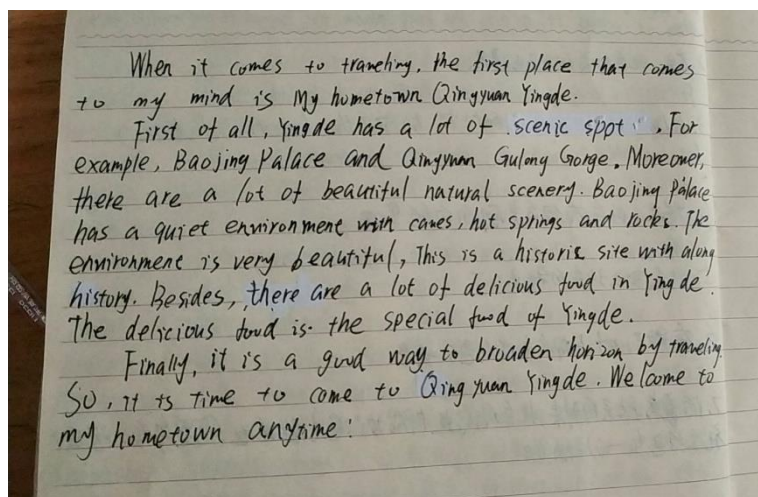 When it comes to traveling, the first place that comes
to my mind is My hometown Qingyuan Yingde.
First of all, Yingde has a lot of scenic spot. For
example, Baojing Palace and Qingyuan Gulong Gorge. Moreover,
there are a lot of beautiful natural scenery. Baojing Palace
has a quiet environment with caves, hot springs and rocks. The
environment is very beautiful, This is a historic site with along
history. Besides, there are a lot of delicious food in Yingde.
The delicious food is the special food of Yingde.
Finally, it is a good way to broaden horizon by traveling.
So, it is time to come to Qingyuan Yingde. Welcome to
my hometown anytime!